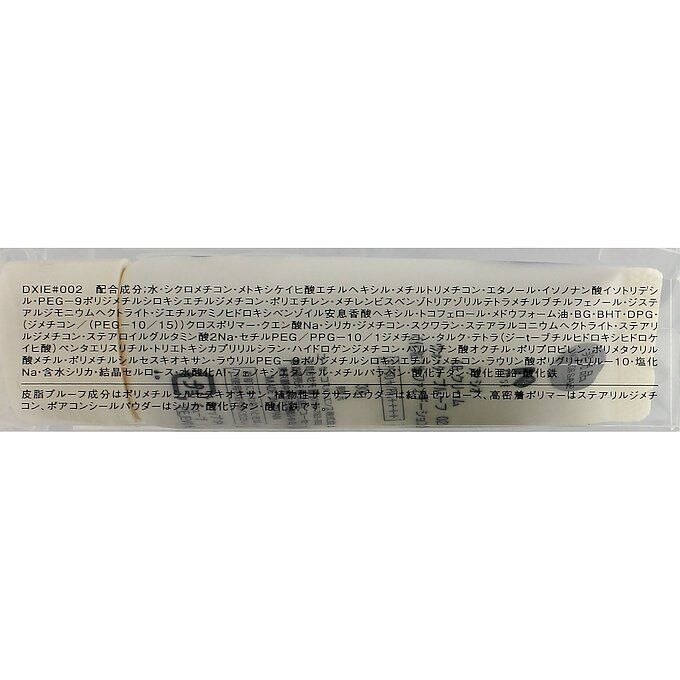 DXIE#002 配合成分;水・シクロメチコン・メトキシケイヒ酸エチルヘキシル・メチルトリメチコン・エタノール・イソノナン酸イソトリデシ
ル・PEG-9ポリジメチルシロキシエチルジメチコン・ポリエチレン・メチレンビスベンゾトリアゾリルテトラメチルブチルフェノール・ジステ
アルジモニウムヘクトライト・ジエチルアミノヒドロキシベンゾイル安息香酸ヘキシル・トコフェロール・メドウフォーム油・BG・BHT・DPG・
(ジメチコン/(PEG-10/15))クロスポリマー・クエン酸Na・シリカ・ジメチコン・スクワラン・ステアラルコニウムヘクトライト・ステアリ
ルジメチコン・ステアロイルグルタミン酸2Na・セチルPEG/PPG-10/1ジメチコン・タルク・テトラ(ジ-t-ブチルヒドロキシヒドロケ
イヒ酸)ペンタエリスリチル・トリエトキシカプリリルシラン・ハイドロゲンジメチコン・パルミチン酸オクチル・ポリプロピレン・ポリメタクリル
酸メチル・ポリメチルシルセスキオキサン・ラウリルPEG-9ポリジメチルシロキシエチルジメチコン・ラウリン酸ポリグリセリル-10・塩化
Na・含水シリカ・結晶セルロース・水酸化Al・フェノキシエタノール・メチルパラベン・酸化チタン・酸化亜鉛・酸化鉄
皮脂プルーフ成分はポリメチルシルセスキオキサン、植物性サラサラパウダーは結晶セルロース、高密着ポリマーはステアリルジメチ
コン、ポアコンシールパウダーはシリカ・酸化チタン・酸化鉄です。